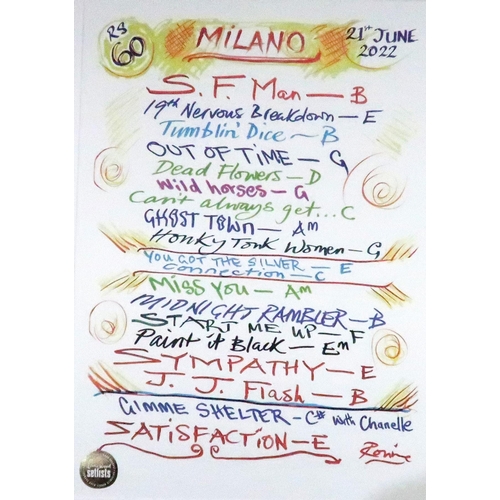 RS
60
MILANO
21st JUNE
2022
S. F. Man — B
19th Nervous Breakdown — E
Tumblin' Dice — B
OUT OF TIME — G
Dead Flowers — D
Wild horses — G
Can't always get... C
GHOST TOWN — Am
Honky Tonk Women — G
YOU GOT THE SILVER — E
Connection — C
MISS YOU — Am
MIDNIGHT RAMBLER — B
START ME UP — F
Paint it Black — Em
SYMPATHY — E
J. J. Flash — B
GIMME SHELTER — C# with Chanelle
SATISFACTION — E
Ronnie
setlists